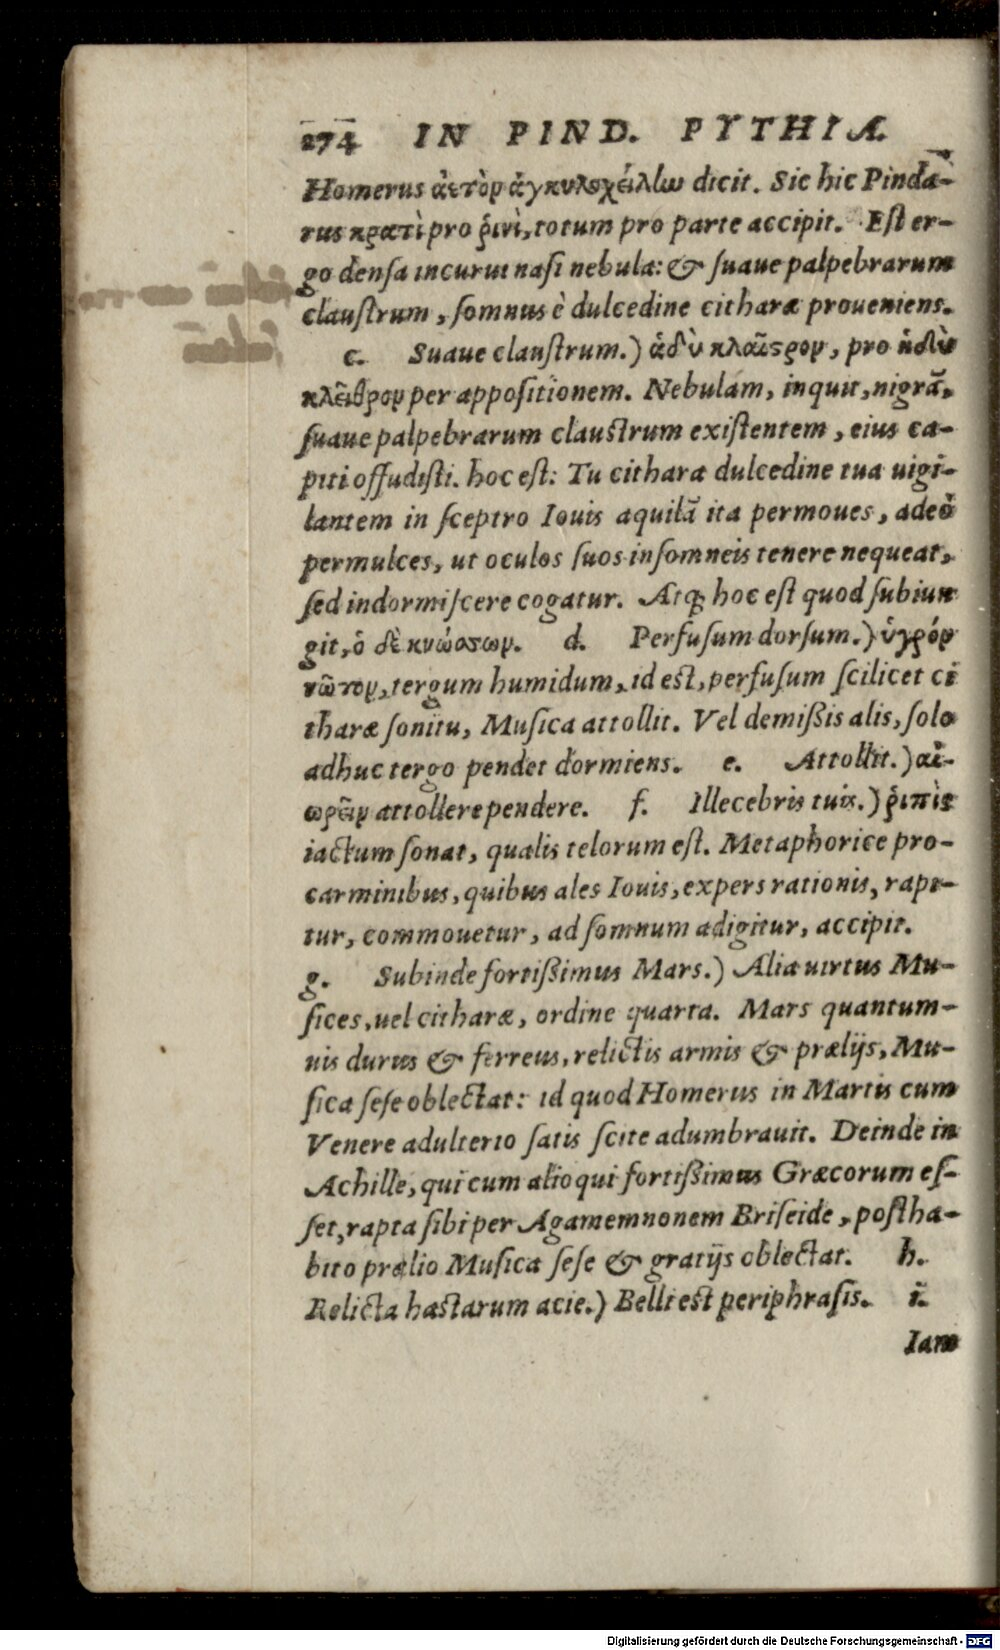 274 IN PIND. PYTHIA.
Homerus ἀετὸν ἀγκυλοχείλην dicit. Sic hic Pinda-
rus κρατὶ pro ῥινὶ, totum pro parte accipit. Eſt er-
go denſa incurui naſi nebula: & ſuaue palpebrarum
clauſtrum, ſomnus è dulcedine citharæ proueniens.
c. Suaue clauſtrum.) ἁδὺ κλαῖςρον, pro ἡδὺ
κλεῖθρον per appoſitionem. Nebulam, inquit, nigrã,
ſuaue palpebrarum clauſtrum exiſtentem, eius ca-
piti offudiſti. hoc eſt: Tu cithara dulcedine tua uigi-
lantem in ſceptro Iouis aquilã ita permoues, adeò
permulces, ut oculos ſuos inſomneis tenere nequeat,
ſed indormiſcere cogatur. Atq; hoc eſt quod ſubiun
git, ὁ δὲ κνώσσων. d. Perfuſum dorſum.) ὑγρόν
νῶτον, tergum humidum, id eſt, perfuſum ſcilicet ci
tharæ ſonitu, Muſica attollit. Vel demißis alis, ſolo
adhuc tergo pendet dormiens. e. Attollit.) αἰ-
ωρεῖν attollere pendere. f. Illecebris tuis.) ῥιπὶς
iactum ſonat, qualis telorum eſt. Metaphorice pro-
carminibus, quibus ales Iouis, expers rationis, rapi-
tur, commouetur, ad ſomnum adigitur, accipit.
g. Subinde fortißimus Mars.) Alia uirtus Mu-
ſices, uel citharæ, ordine quarta. Mars quantum-
uis durus & ferreus, relictis armis & prælijs, Mu-
ſica ſeſe oblectat: id quod Homerus in Martis cum
Venere adulterio ſatis ſcite adumbrauit. Deinde in
Achille, qui cum alioqui fortißimus Græcorum eſ-
ſet, rapta ſibi per Agamemnonem Briſeide, poſtha-
bito prælio Muſica ſeſe & gratijs oblectat. h.
Relicta haſtarum acie.) Belli eſt periphraſis. i.
Iam
Digitalisierung gefördert durch die Deutsche Forschungsgemeinschaft - DFG